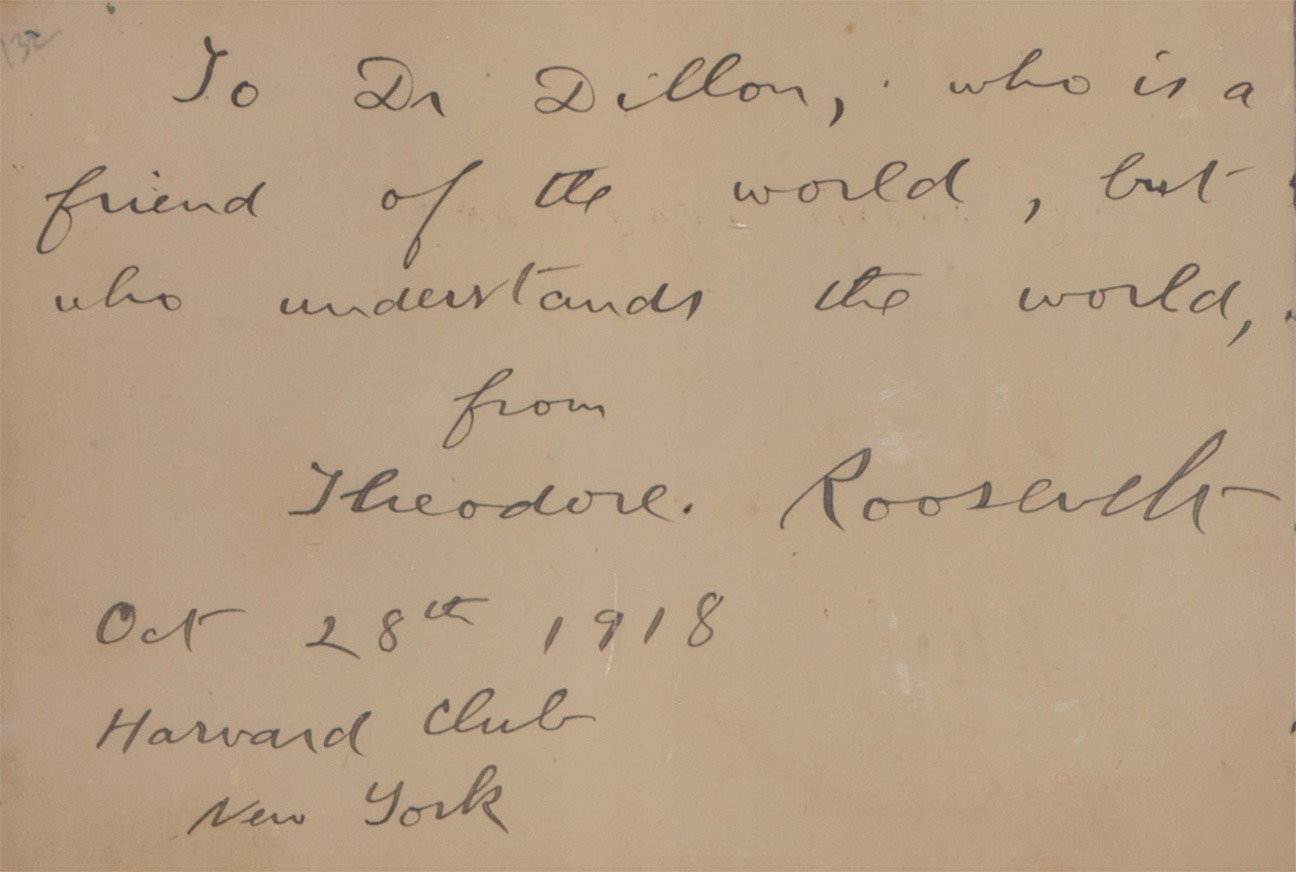 132
To Dr Dillon, who is a
friend of the world, but
who understands the world,
from
Theodore. Roosevelt
Oct 28th 1918
Harvard Club
New York